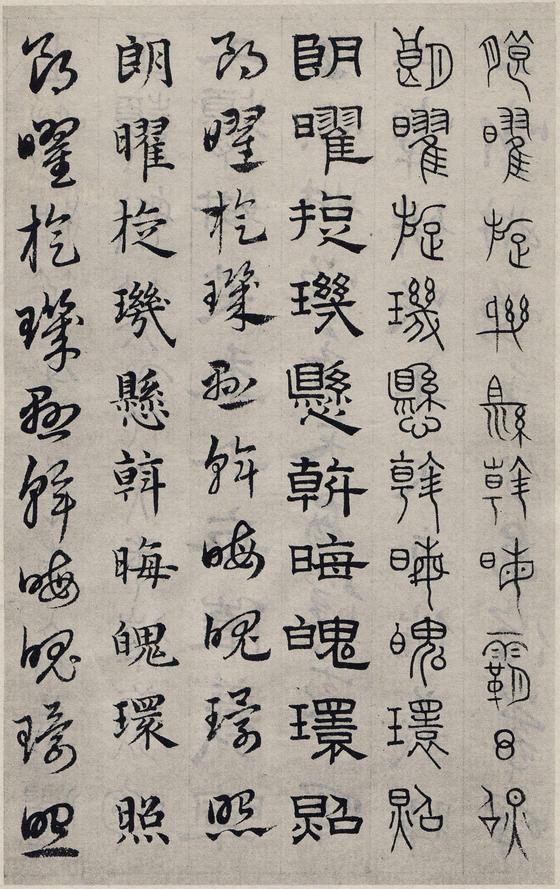 朖曜旋璣縣斡晦霸環照
朗曜旋璣懸斡晦魄環照
朗曜旋璣懸斡晦魄環照
朗曜旋璣懸斡晦魄環照
朗曜旋璣懸斡晦魄環照
朗曜旋璣懸斡晦魄環照